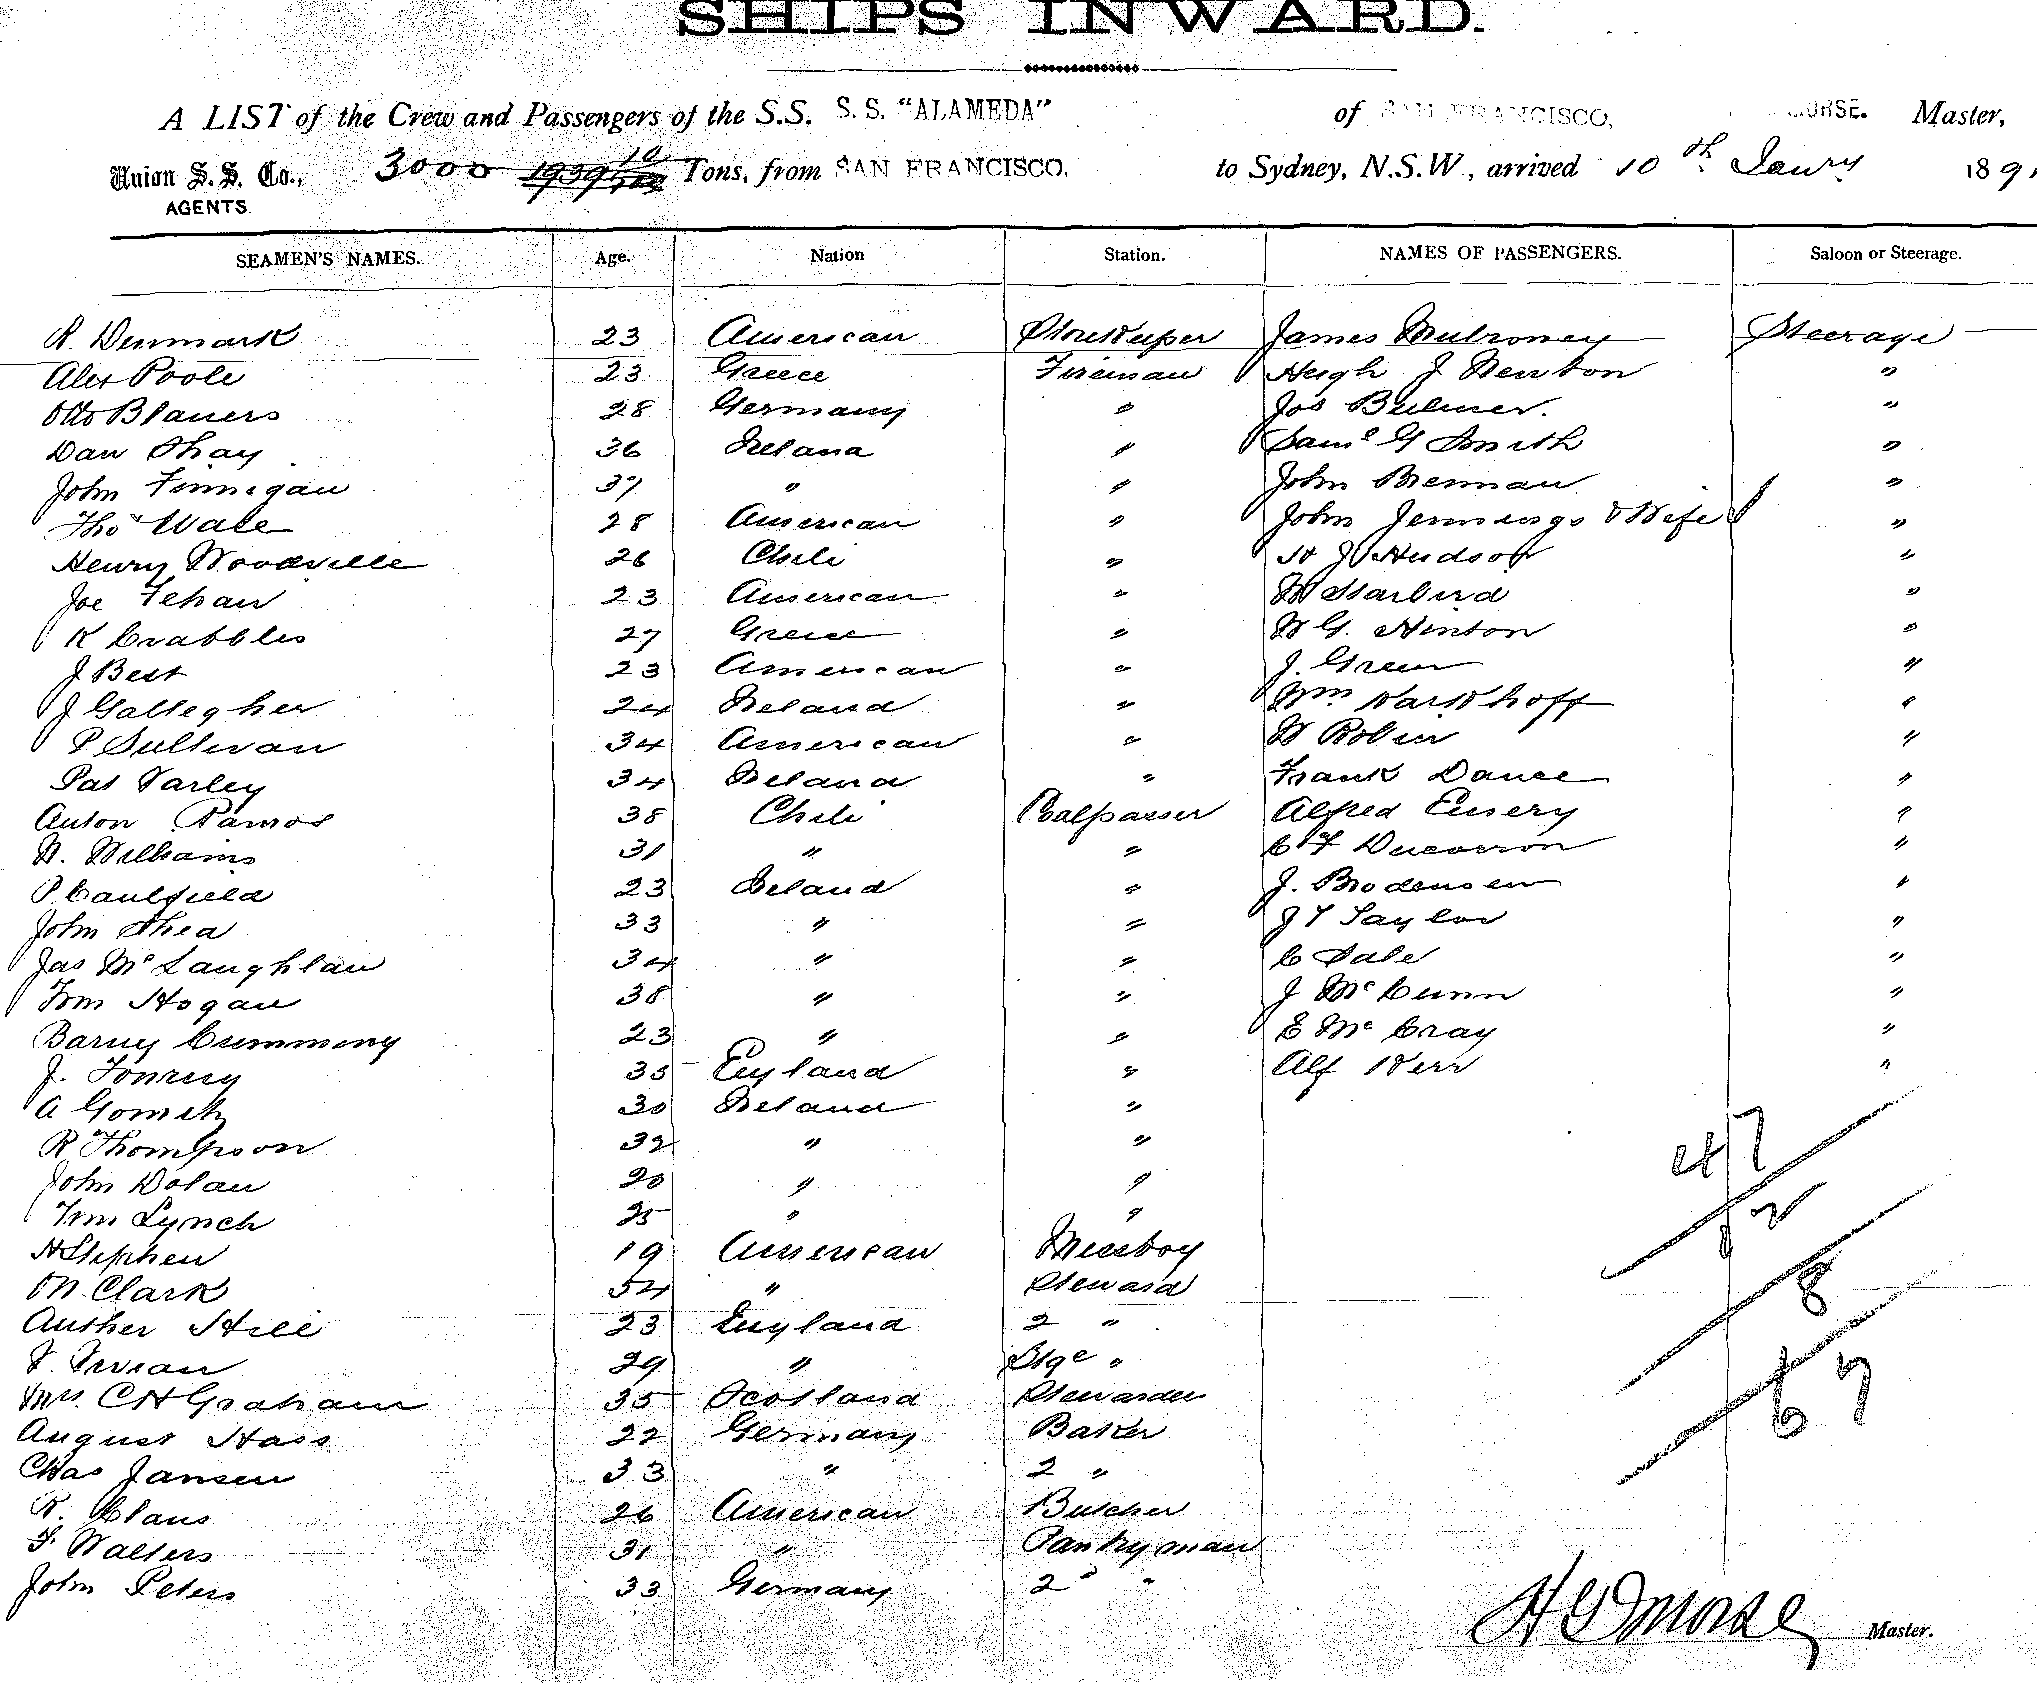 SHIPS INWARD.
A LIST of the Crew and Passengers of the S.S. S.S. "ALAMEDA" of SAN FRANCISCO, MORSE. Master,
Union S. S. Co., 3000 1939 Tons, from SAN FRANCISCO. to Sydney, N.S.W., arrived 10th Janry 189
AGENTS.
SEAMEN'S NAMES. Age. Nation Station. NAMES OF PASSENGERS. Saloon or Steerage.
R. Denmark 23 American Storekeeper James Mulroney Steerage
Alex Poole 23 Greece Fireman Hugh J Newton "
Otto Blauers 28 Germany " Jos Bulmer. "
Dan Shay 36 Ireland " Saml G Smith "
John Finnegan 37 " " John Brennan "
Thos Wale 28 American " John Jennings & Wife "
Henry Woodville 26 Chili " H J Hudson "
Joe Tehan 23 American " W Starbird "
K Crabbles 27 Greece " W G. Hinton "
J Best 23 American " J. Green "
J Gallegher 24 Ireland " Wm Karkhoff "
P Sullivan 34 American " W Robin "
Pat Varley 34 Ireland " Frank Dance "
Anton Ramos 38 Chili Coalpasser Alfred Emery "
W. Williams 31 " " C F "
P. Caulfield 23 Ireland " J. Brodensen "
John Shea 33 " " J T Taylor "
Jas McLaughlan 34 " " C Dale "
Tom Hogan 38 " " J McCunn "
Barney Cumming 23 " " E McCray "
J. 35 England " Alf Kerr "
A Gometz 30 Ireland "
R Thompson 32 " "
John Dolan 20 " "
Tom Lynch 25 " "
H Stephen 19 American Messboy
M. Clark 54 " Steward
Auther Hill 23 England 2 "
V. Vivian 29 " Stge "
Mrs. C H Graham 35 Scotland Stewardess
August Hass 22 Germany Baker
Chas Jansen 33 " 2 "
R. Claus 26 American Butcher
F. Walters 31 " Pantryman
John Peters 33 Germany 2 " "
47
12
8
67
H G Morse Master.